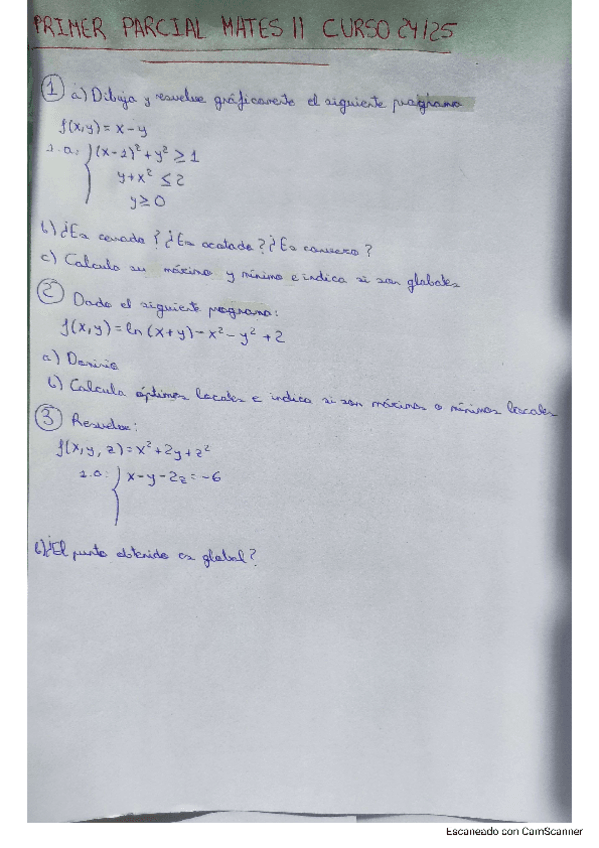 PRIMER PARCIAL MATES II CURSO 24/25
① a) Dibuja y resuelve gráficamente el siguiente programa
f(x,y) = x - y
s.a: (x-2)² + y² ≥ 1
y + x² ≤ 2
y ≥ 0
b) ¿Es cerrado? ¿Es acotado? ¿Es convexo?
c) Calcula su máximo y mínimo e indica si son globales
② Dado el siguiente programa:
f(x,y) = ln (x+y) - x² - y² + 2
a) Deriva
b) Calcula óptimos locales e indica si son máximos o mínimos locales
③ Resuelve:
f(x,y,z) = x² + 2y + z²
s.a: x - y - 2z = -6
b) ¿El punto obtenido es global?
Escaneado con CamScanner